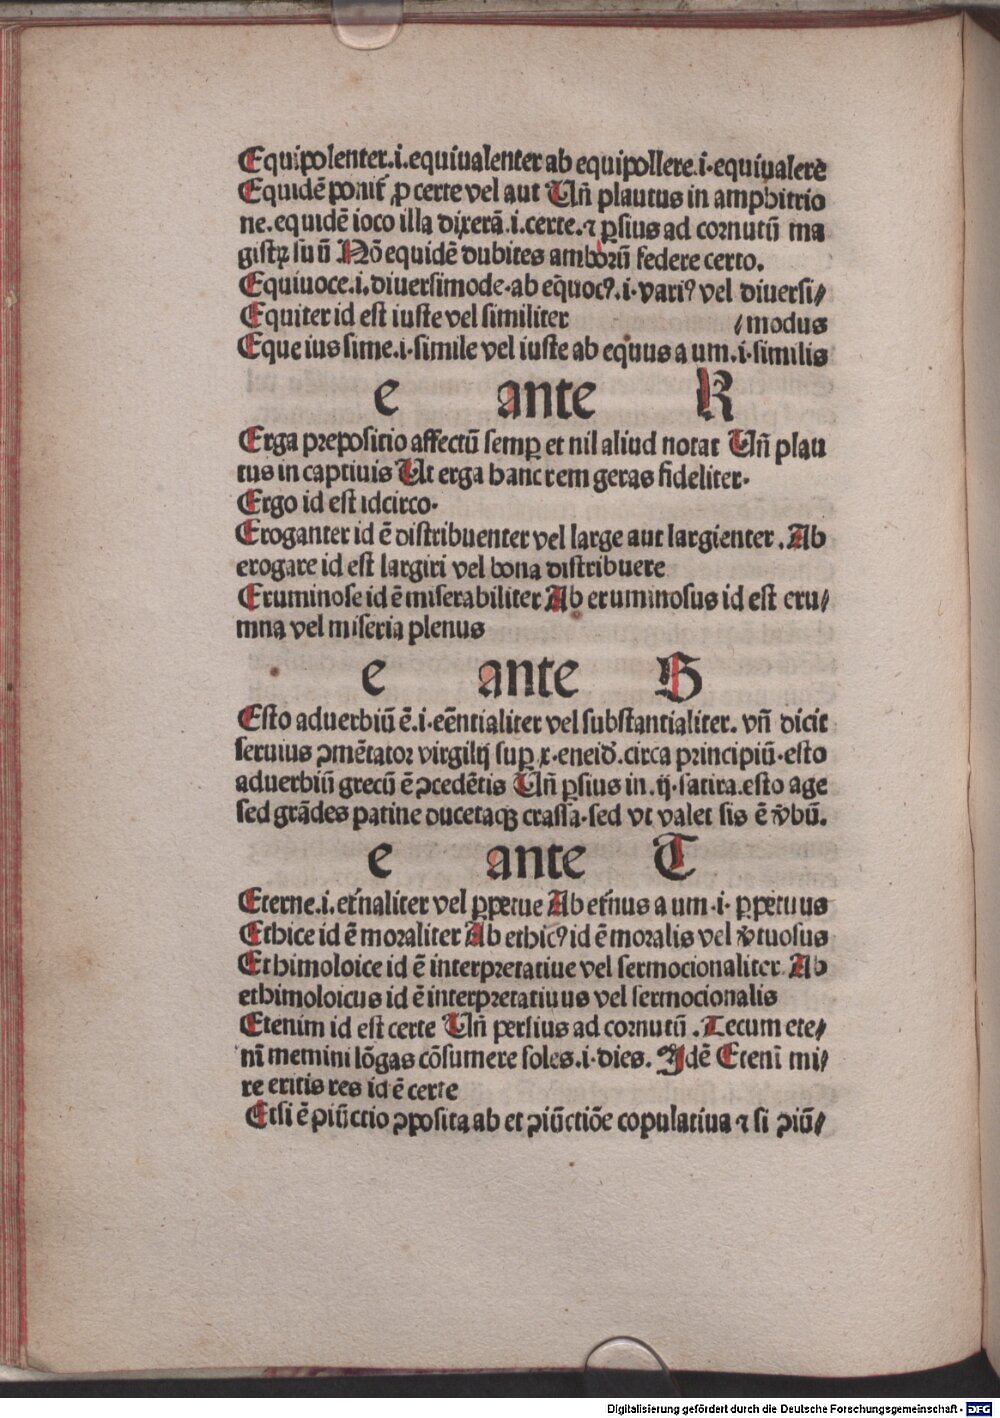 Equipolenter.i.equiualenter ab equipollere.i.equiualere
Equidē ponit̄ ꝓ certe vel aut Vñ plautus in amphitrio
ne.equidē ioco illa dixerā.i.certe.⁊ ꝑsius ad cornutū ma
gistꝝ suū Nō equidē dubites amborū federe certo.
Equiuoce.i.diuersimode.ab eq̄uocꝰ.i.variꝰ vel diuersi⸗
Equiter id est iuste vel similiter ⸗modus
Eque ius sime.i.simile vel iuste ab equus a um.i.similis
e ante R
Erga prepositio affectū semꝑ et nil aliud notat Vñ plau
tus in captiuis Ut erga hanc rem geras fideliter.
Ergo id est idcirco.
Eroganter id ē distribuenter vel large aut largienter. Ab
erogare id est largiri vel bona distribuere
Eruminose id ē miserabiliter Ab eruminosus id est eru⸗
mna vel miseria plenus
e ante S
Esto aduerbiū ē.i.eēntialiter vel substantialiter. vñ dicit
seruius ꝯmētator virgilij suꝑ x.eneid̄.circa principiū.esto
aduerbiū grecū ē ꝯcedētis Vñ ꝑsius in.ij.satira.esto age
sed grādes patine ducetaqꝫ crassa.sed vt valet sis ē v̄bū.
e ante T
Eterne.i.et̄naliter vel ꝑpetue Ab et̄nus a um.i.ꝑpetuus
Ethice id ē moraliter Ab ethicꝰ id ē moralis vel v̄tuosus
Ethimoloice id ē interpretatiue vel sermocionaliter. Ab
ethimoloicus id ē interpretatiuus vel sermocionalis
Etenim id est certe Vñ persius ad cornutū .Tecum ete⸗
nī memini lōgas cōsumere soles.i.dies. Idē Etenī mi⸗
re eritis res id ē certe
Etsi ē ꝯiūctio ꝯposita ab et ꝯiūctiōe copulatiua ⁊ si ꝯiū⸗
Digitalisierung gefördert durch die Deutsche Forschungsgemeinschaft - DFG